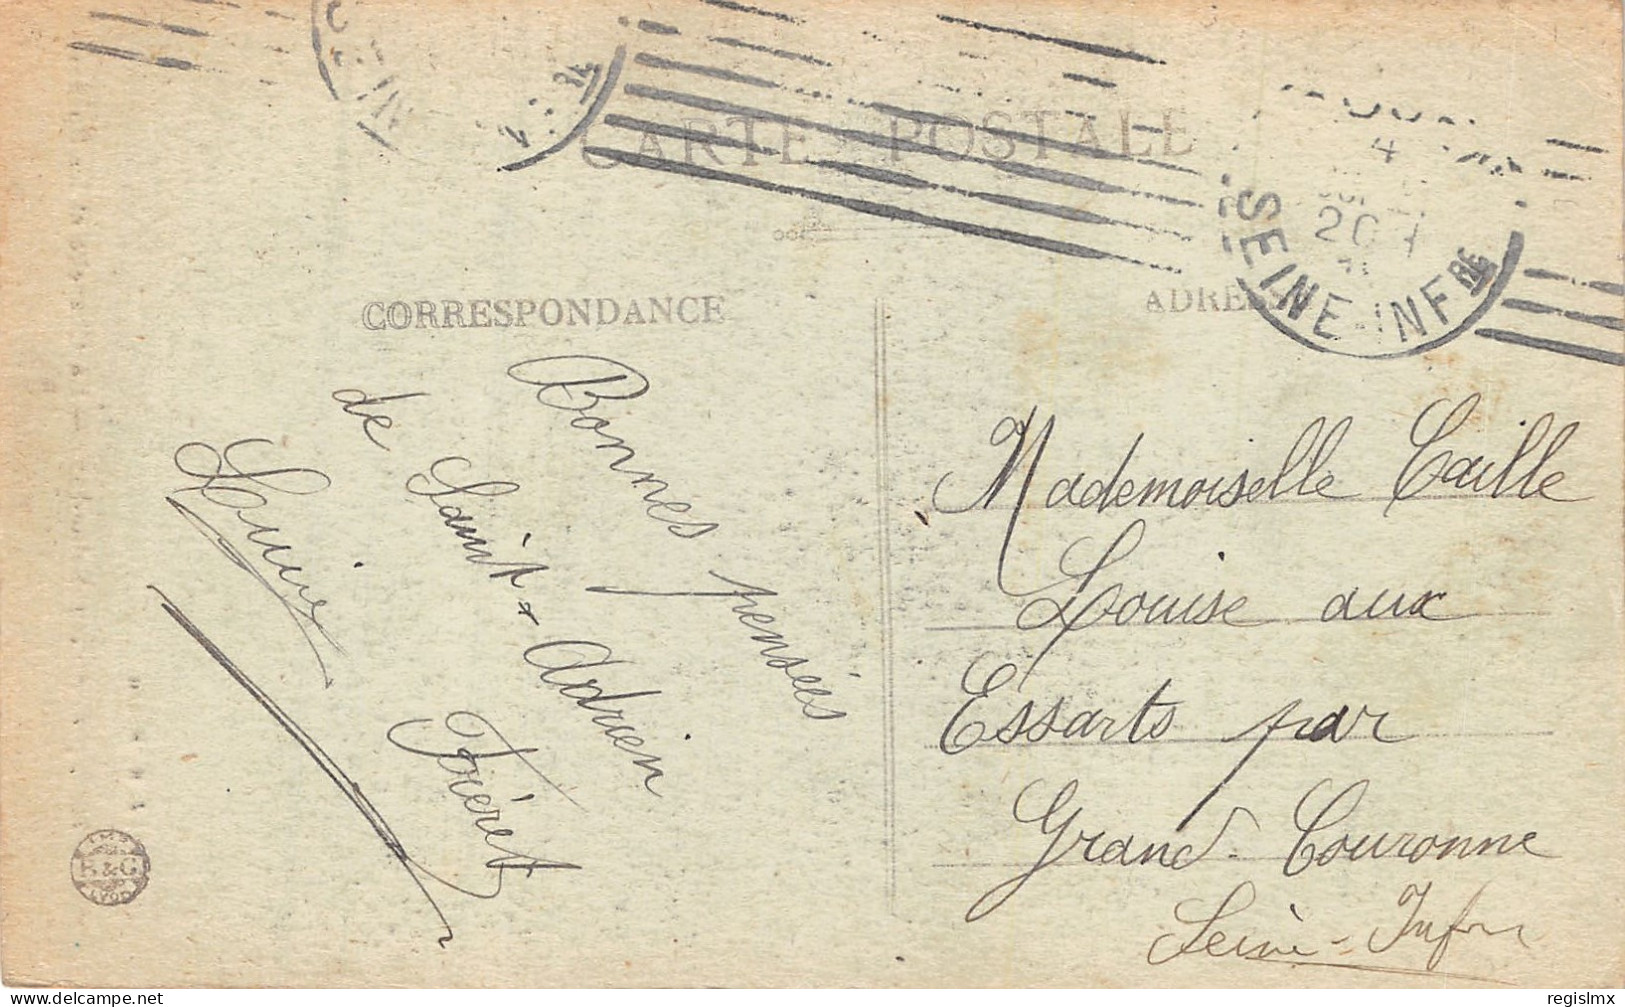 CARTE POSTALE
4
20
SEINE-INFRE
CORRESPONDANCE
ADRESSE
Bonnes pensées
de Saint-Adrien
Louise
Mademoiselle Caille
Louise aux
Essarts par
Grand-Couronne
Seine-Infre
B & G
LYON
delcampe.net
regislmx